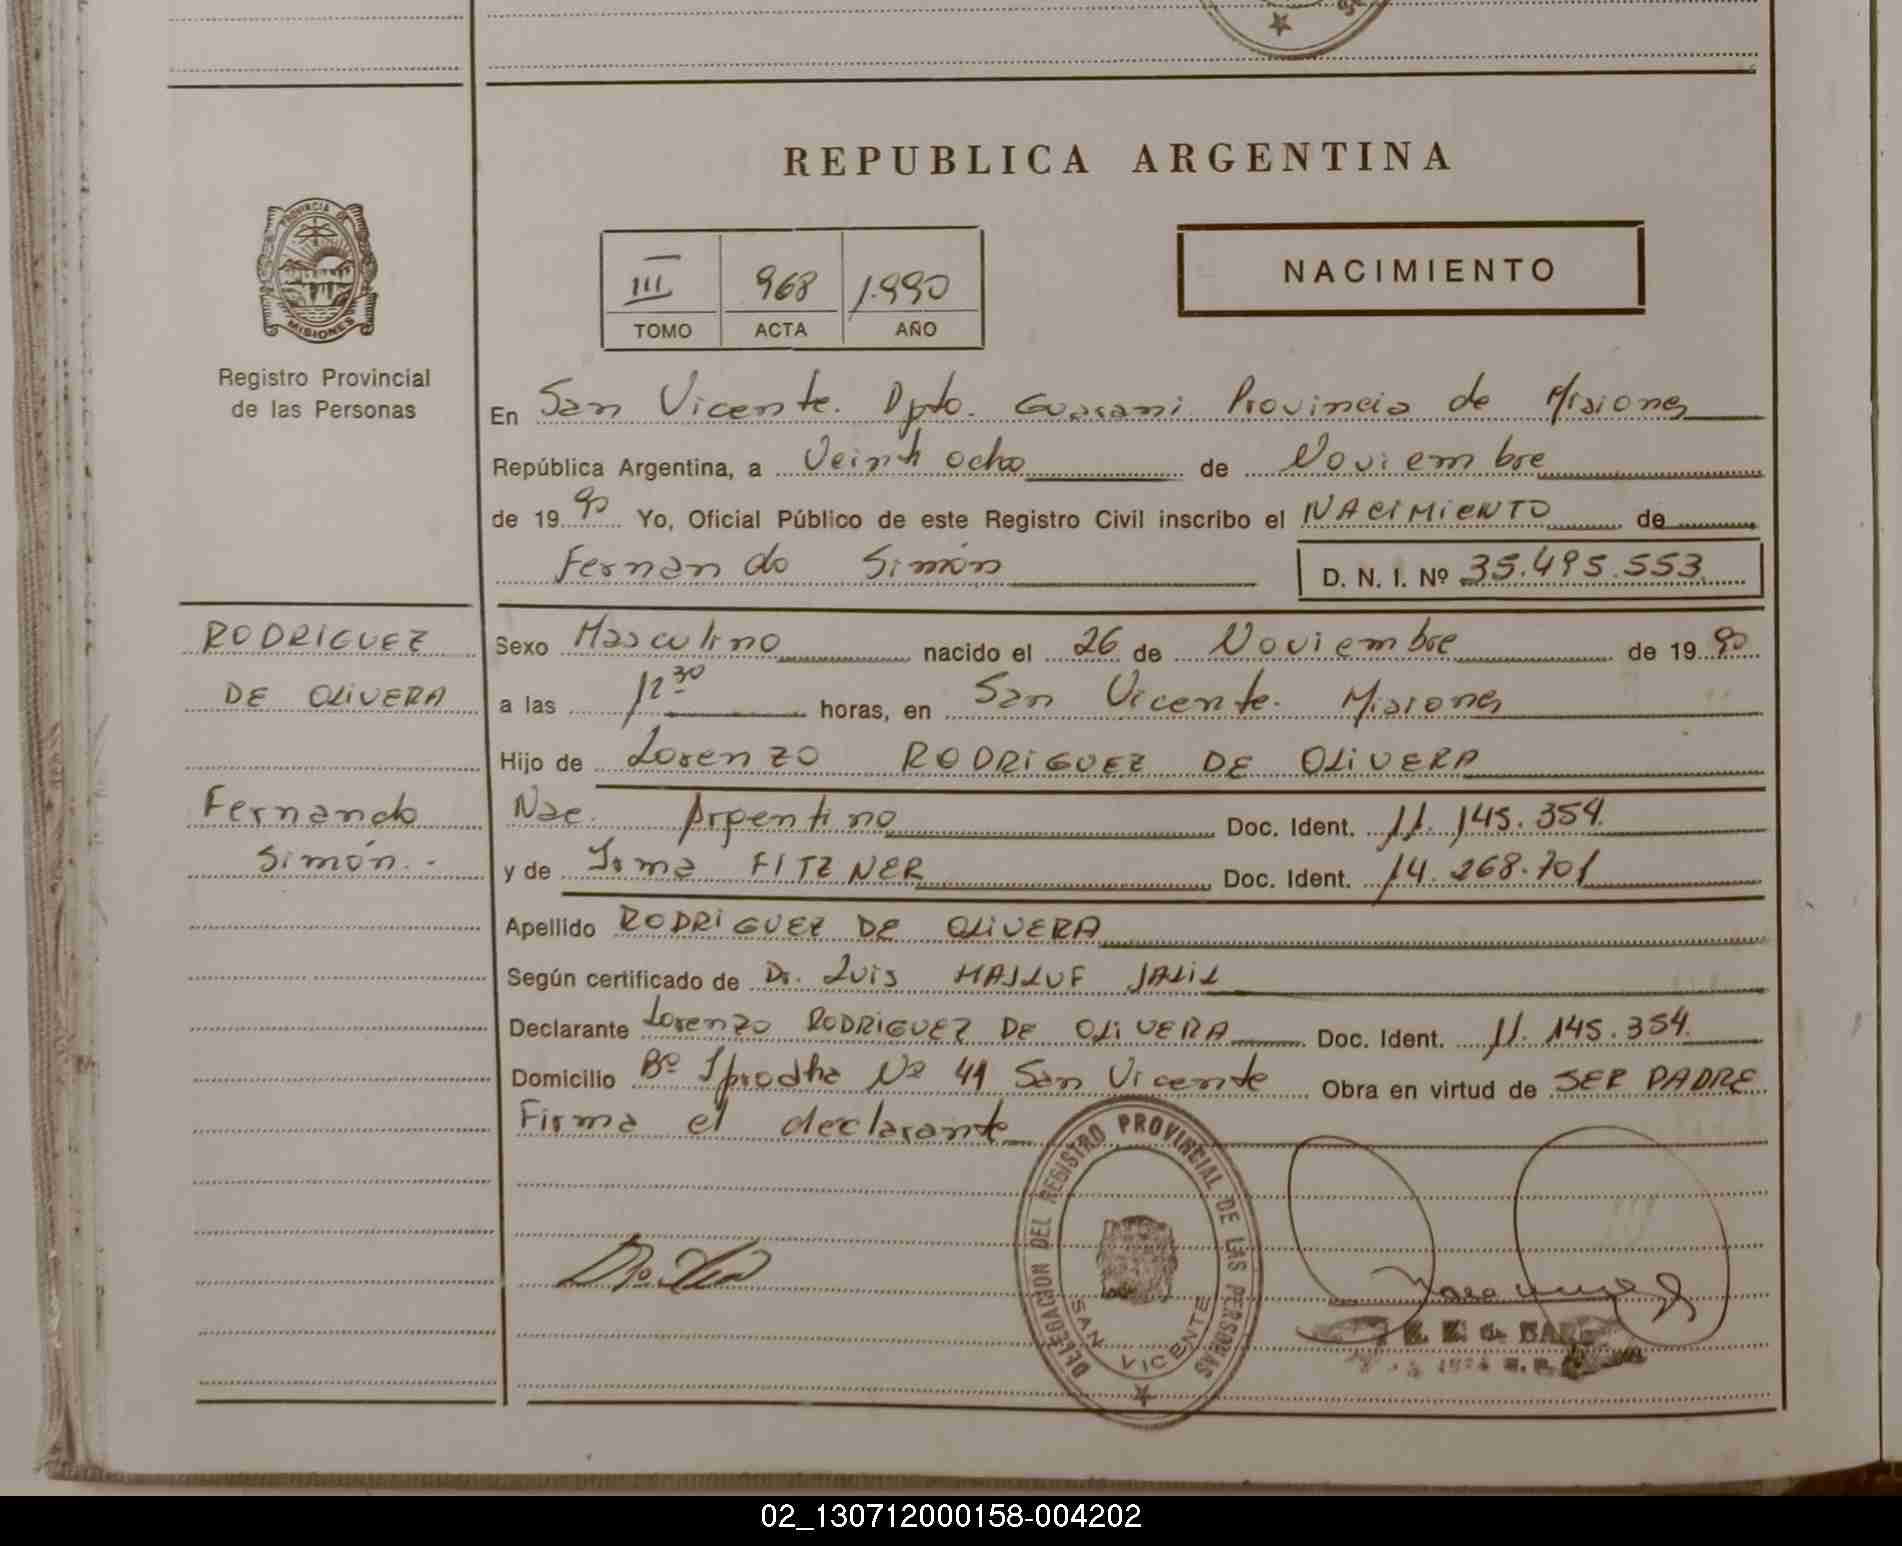 PROVINCIA DE
MISIONES
Registro Provincial
de las Personas
REPUBLICA ARGENTINA
III 968 1.990
TOMO ACTA AÑO
NACIMIENTO
En San Vicente. Dpto. Guarani Provincia de Misiones
República Argentina, a Veinti ocho de Noviembre
de 1990 Yo, Oficial Público de este Registro Civil inscribo el NACIMIENTO de
Fernando Simón D. N. I. Nº 35.495.553
RODRIGUEZ
DE OLIVERA
Fernando
Simón.-
Sexo Masculino nacido el 26 de Noviembre de 1990
a las 12 30 horas, en San Vicente. Misiones
Hijo de Lorenzo RODRIGUEZ DE OLIVERA
Nac. Argentino Doc. Ident. 11.145.354.
y de Irma FITZNER Doc. Ident. 14.268.701
Apellido RODRIGUEZ DE OLIVERA
Según certificado de Dr. Luis MAJLUF JALIL
Declarante Lorenzo RODRIGUEZ DE OLIVERA Doc. Ident. 11.145.354.
Domicilio Bº Nº 41 San Vicente Obra en virtud de SER PADRE
Firma el declarante
DELEGACION DEL REGISTRO PROVINCIAL DE LAS PERSONAS
SAN VICENTE
02_130712000158-004202